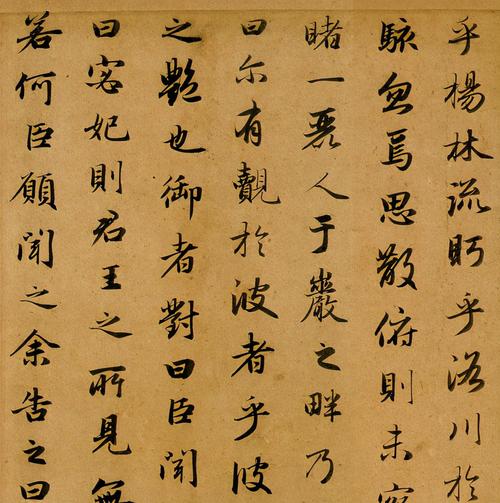 乎楊林流眄乎洛川於
駭忽焉思散俯則未察
睹一麗人于巖之畔乃
曰尔有覿於彼者乎彼
之艷也御者對曰臣聞
曰宓妃則君王之所見無
若何臣願聞之余告之曰